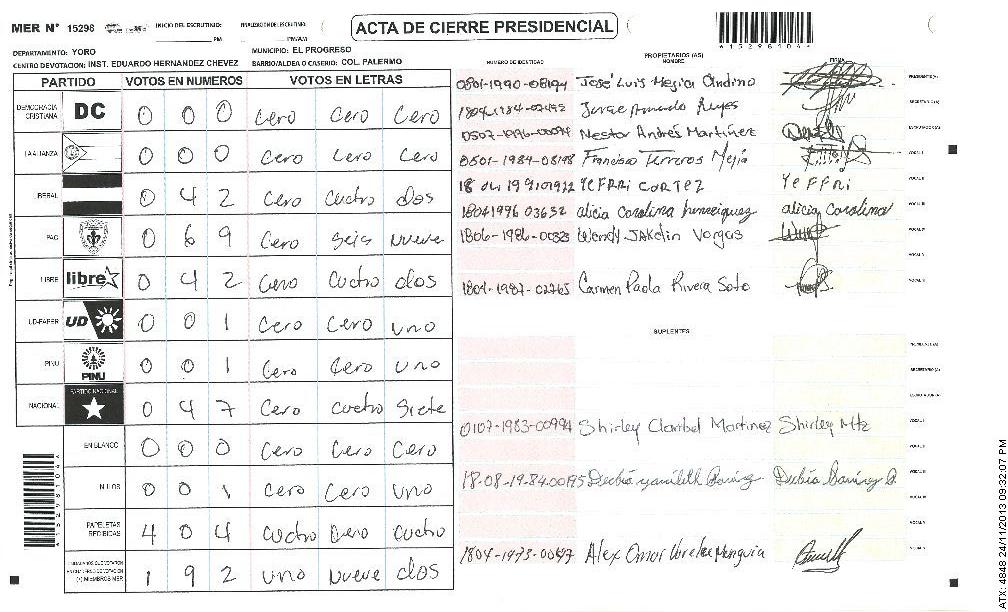 MER N° 15298 INICIO DEL ESCRUTINIO: PM FINALIZACION DEL ESCRUTINIO:
ACTA DE CIERRE PRESIDENCIAL
DEPARTAMENTO: YORO MUNICIPIO: EL PROGRESO
CENTRO DE VOTACION: INST. EDUARDO HERNANDEZ CHEVEZ BARRIO/ALDEA O CASERIO: COL. PALERMO
PARTIDO VOTOS EN NUMEROS VOTOS EN LETRAS
DEMOCRACIA CRISTIANA DC 0 0 0 Cero Cero Cero
LA ALIANZA 0 0 0 Cero Cero Cero
LIBERAL 0 4 2 Cero Cuatro dos
PAC 0 6 9 Cero Seis nueve
LIBRE libre 0 4 2 Cero Cuatro dos
UD-FAPER UD 0 0 1 Cero Cero uno
PINU PINU 0 0 1 Cero Cero uno
NACIONAL PARTIDO NACIONAL 0 4 7 Cero cuatro Siete
EN BLANCO 0 0 0 Cero Cero Cero
NULOS 0 0 1 Cero Cero uno
PAPELETAS RECIBIDAS 4 0 4 Cuatro Cero Cuatro
(+) MIEMBROS MER 1 9 2 uno nueve dos
PROPIETARIOS (AS)
NUMERO DE IDENTIDAD NOMBRE FIRMA
0801-1990-08194 José Luis Mejia Andino
Jorge Armando Reyes
Nestor Andrés Martinez
0501-1984-08198 Francisco Terreros Mejía
YEFFRI CORTEZ YeFFRi
1804 1996 03632 alicia Carolina henriquez alicia Carolina
1806-1986-00323 Wendy JAKelin Vargas
1804-1987-02765 Carmen Paola Rivera Soto
SUPLENTES
0107-1983-00994 Shirley Claribel Martinez Shirley Mtz
18-08-19-84.00195
1804-1973-00647 Alex Omar
ATX: 4848 24/11/2013 09:32:07 PM